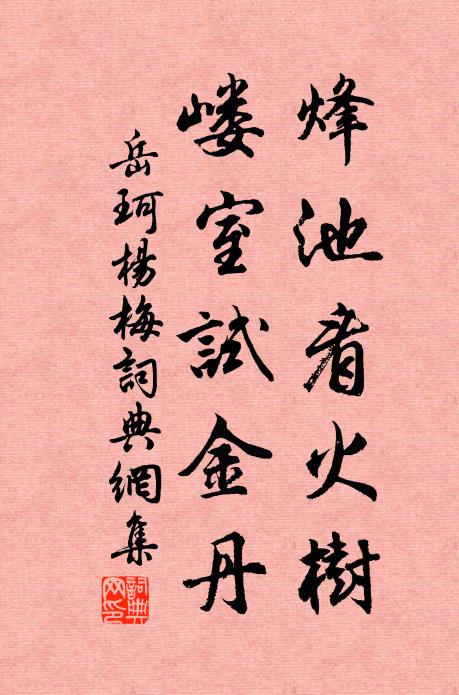 烽池看火樹
嵝室試金丹
岳珂楊梅詞典網集
詞典網印